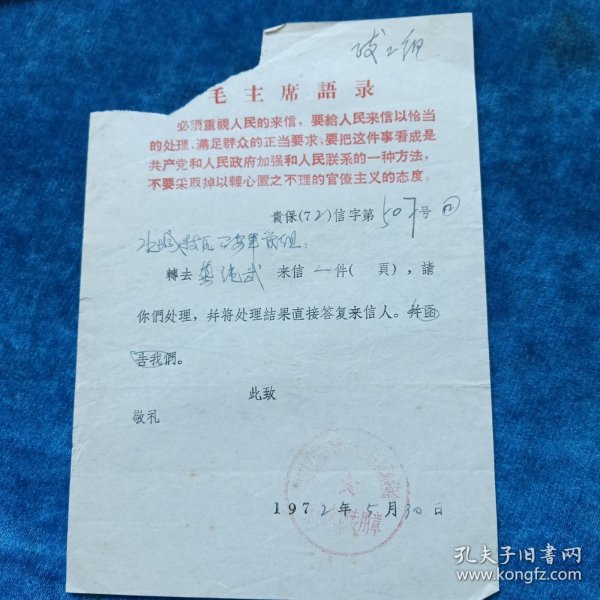 毛主席語录
必須重視人民的来信，要給人民来信以恰当
的处理，滿足群众的正当要求，要把这件事看成是
共产党和人民政府加强和人民联系的一种方法，
不要采取掉以輕心置之不理的官僚主义的态度。
貴保(72)信字第507号
轉去 来信一件( 頁)，請
你們处理，幷将处理結果直接答复来信人。幷函
告我們。
此致
敬礼
专用章
1972年5月30日
孔夫子旧书网
www.kongfz.com